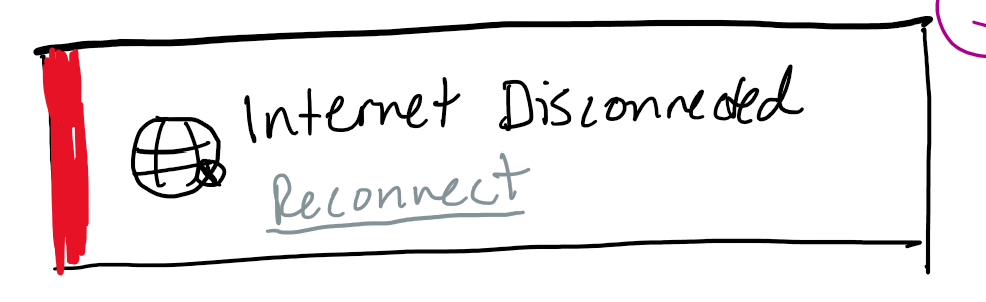 Internet Disconnected
Reconnect